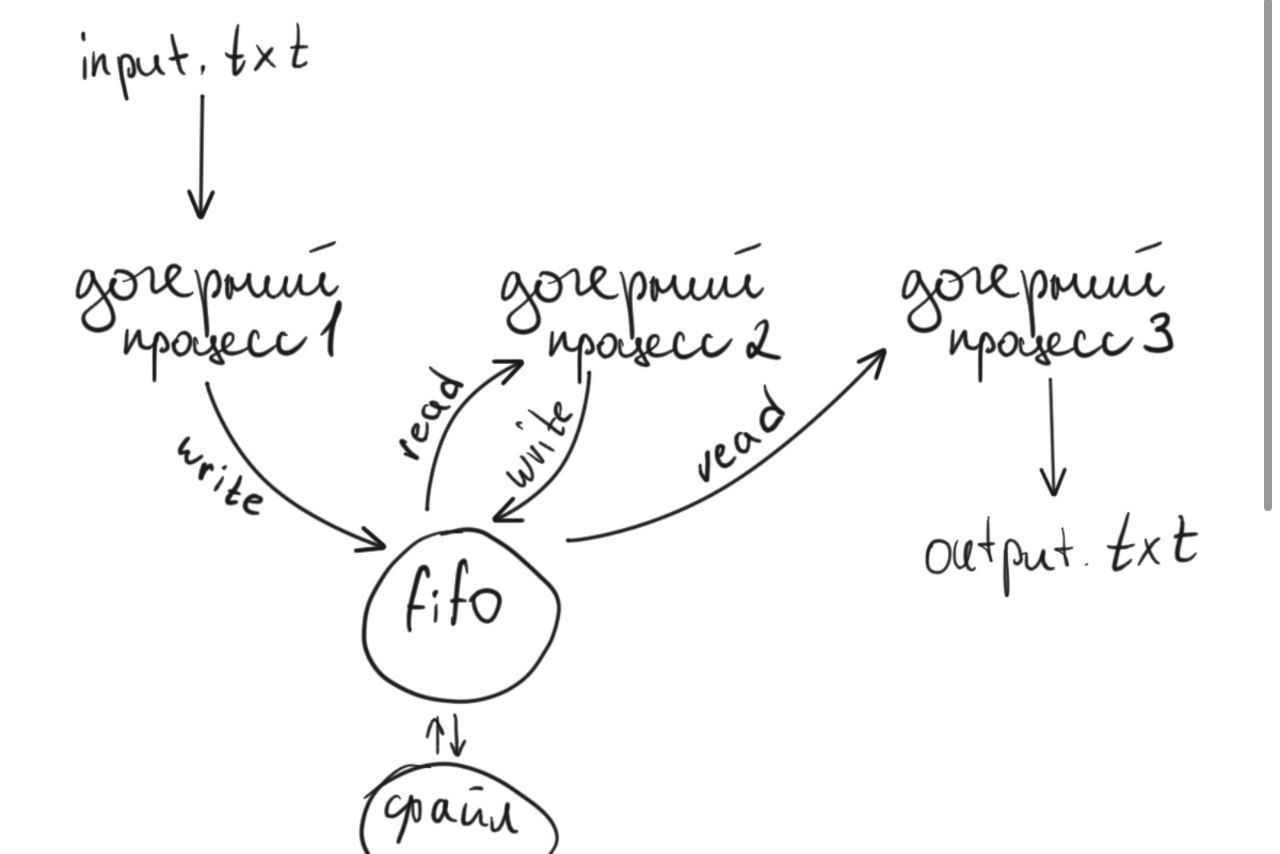 input.txt
дочерний
процесс 1
дочерний
процесс 2
дочерний
процесс 3
write
read
write
read
fifo
output.txt
файл